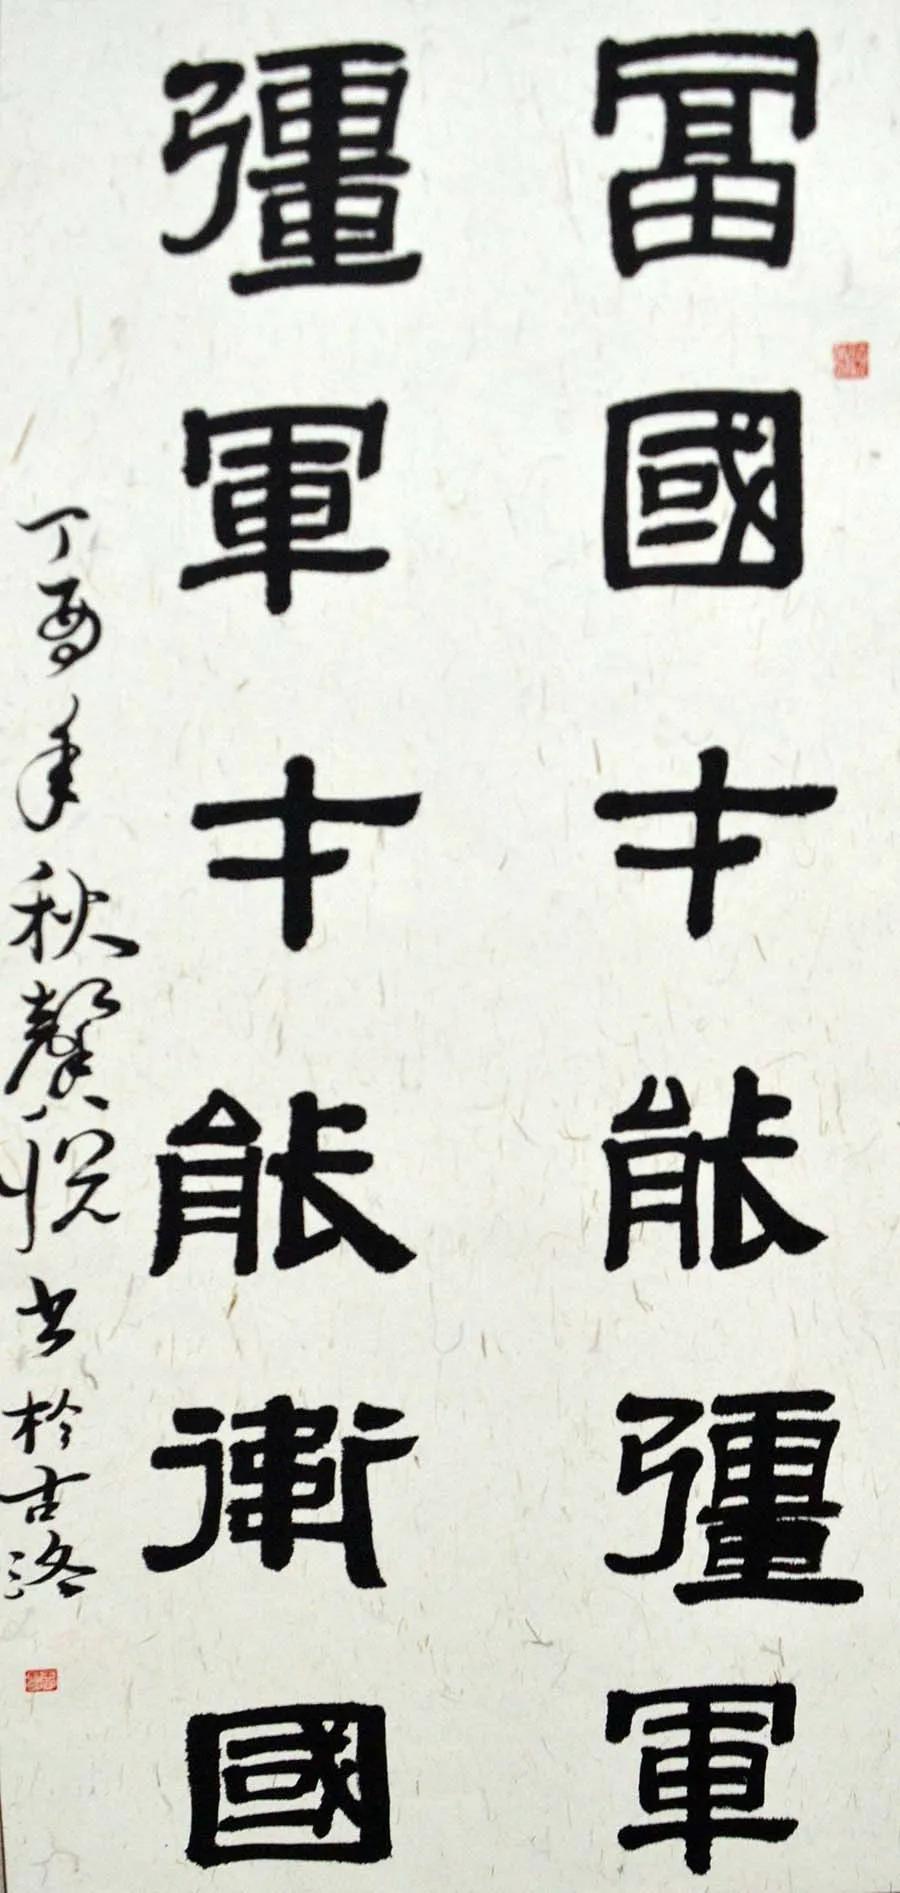 富國才能彊軍
彊軍才能衛國
丁酉年秋馨悦书於古洛